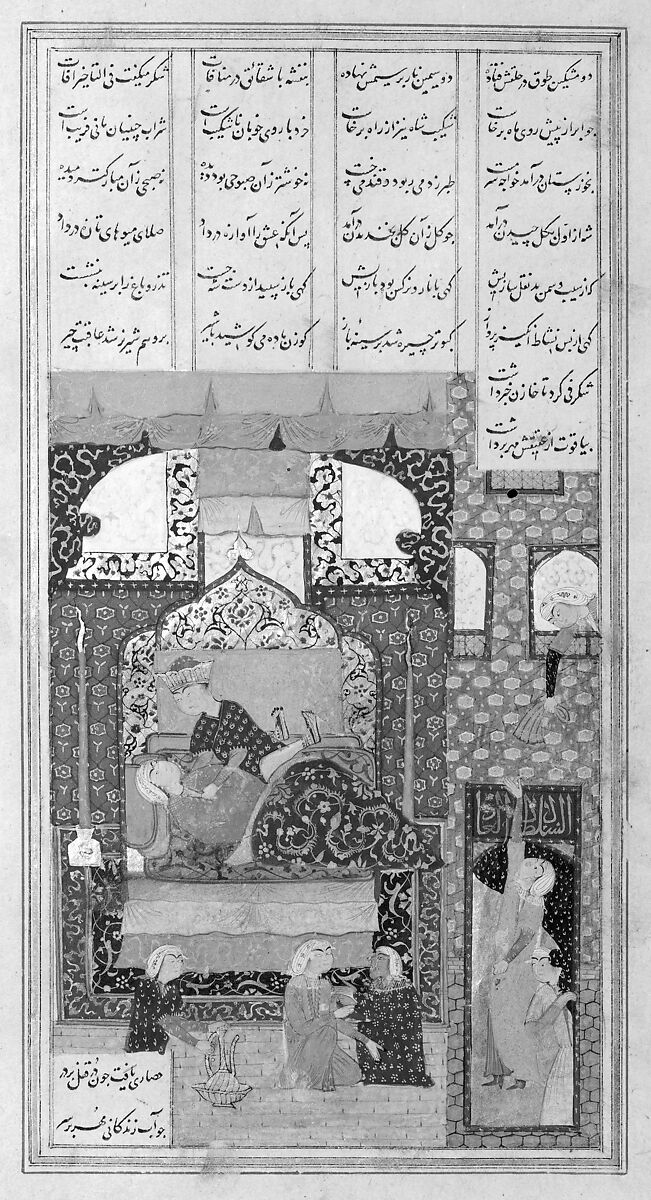 دو مشکین طوق در حلقش فتاده دو سیمین نار بر سیمش نهاده بنفشه با شقائق در مناقات شکر میگفت فی التاخیر افات
چو ابر از پیش روی ماه برخاست شکیب شاه نیز از راه برخاست خرد با روی خوبان ناشکیب است شراب چینیان مانی فریب است
بخوزستان درآمد خواجه سرمست طبرزد می ربود و قند می خست نه خوشتر زان صبوحی بود دیده نه صبحی زان مبارکتر دمیده
شه از اول بگل چیدن درآمد چو گل زان گل بخندیدن درآمد پس آنگه عشق را آوازه در داد صلای میوهای تازه در داد
که از سیب و سمن بد نقل سازیش گهی با نار و نرگس بود بازیش گهی باز سپید از دست شه جست تذرو باغ را بر سینه بنشست
گهی از بس نشاط انگیز پرواز کبوتر چیره شد بر سینه باز گوزن ماده می کوشید با شیر برو هم شیر نر شد عاقبت چیر
شگرفی کرد تا خازن خبر داشت
بیاقوت از عقیقش مهر برداشت
السلطان العادل
حصاری یافت چون در قفل بر در
چو آب زندگانی مهر بر سر